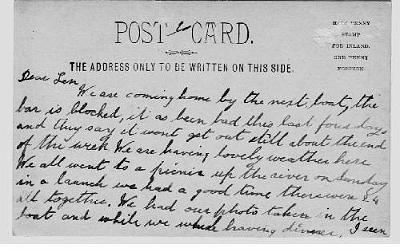 POST CARD.
HALF PENNY
STAMP
FOR INLAND.
ONE PENNY
FOREIGN.
THE ADDRESS ONLY TO BE WRITTEN ON THIS SIDE.
Dear Len
We are coming home by the next boat, the
bar is blocked, it as been bad this last four days
and they say it wont get out till about the end
of the week We are having lovely weather here
We all went to a picnic up the river on Sunday
in a launch we had a good time there were 24
all together. We had our photo taken in the
boat and while we were having dinner, I seen